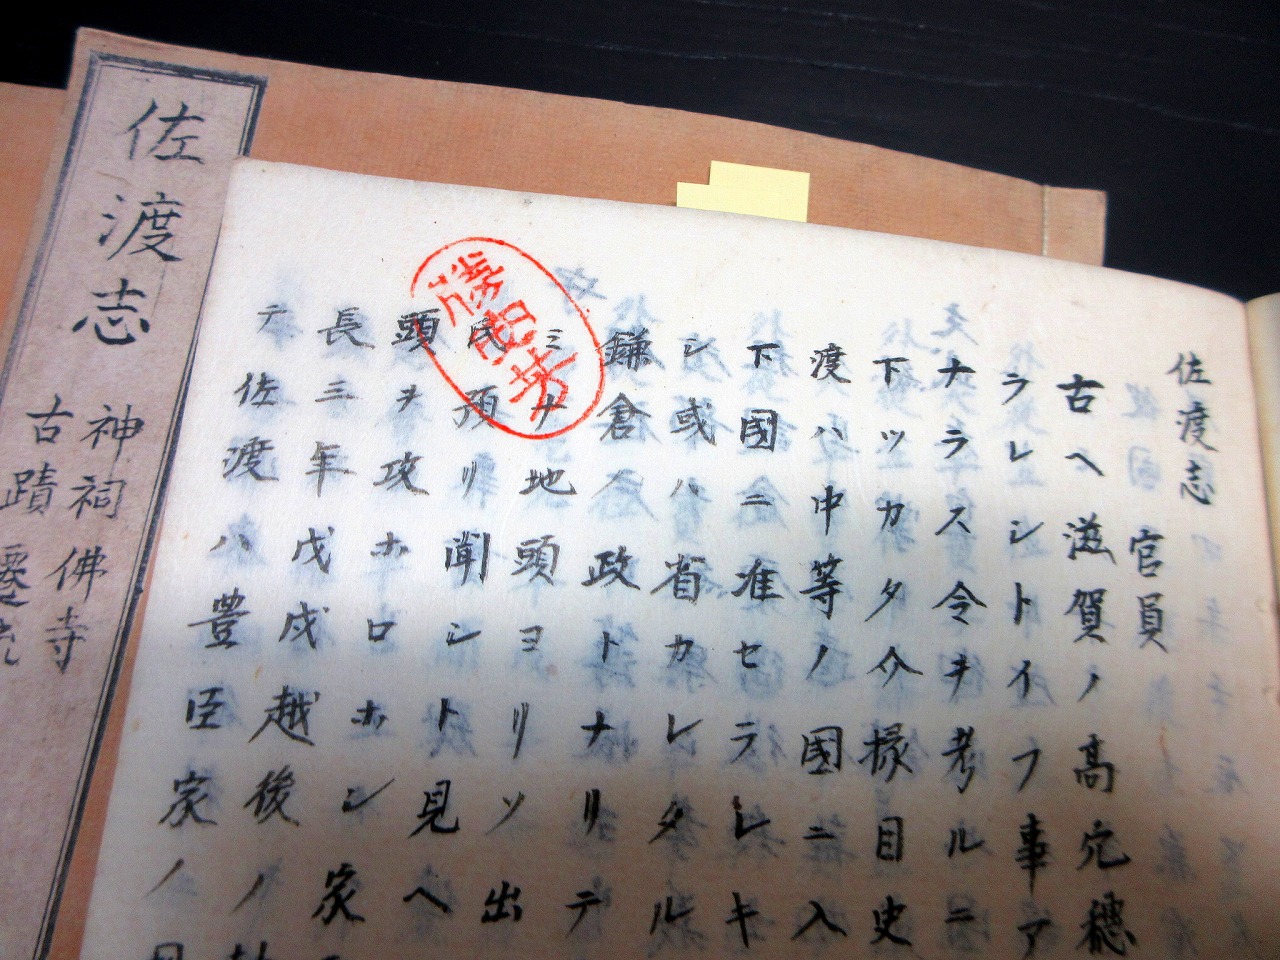 佐渡志
官員
古ヘ滋賀ノ高穴穂
ラレシトイフ事ア
ナラス令キ考ルニ
下ツカタ介掾目史
渡ハ中等ノ國ニ入
下國ニ准セラレキ
シ或ハ省カレタル
鎌倉ノ政トナリテ
ミナ地頭ヨリソ出
民預リ聞シト見ヘ
頭ヲ攻ホロホシ家
長三年戊戌越後ノ
テ佐渡ハ豊臣家ノ
佐渡志
神祠佛寺
古蹟